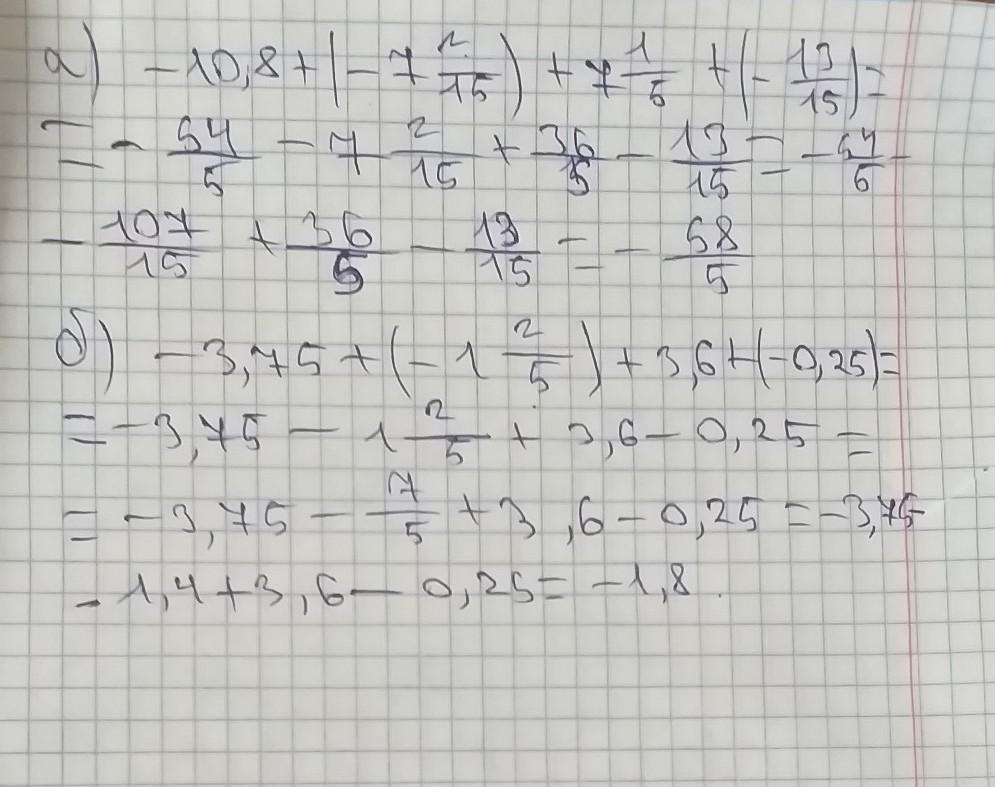 а) -10,8+(-7 2/15) + 7 1/5 + (-13/15)=
= - 54/5 - 7 2/15 + 36/5 - 13/15 = -54/5 -
- 107/15 + 36/5 - 13/15 = - 58/5
б) -3,75+(-1 2/5)+3,6+(-0,25)=
= -3,75 - 1 2/5 + 3,6 - 0,25 =
= -3,75 - 7/5 + 3,6 - 0,25 = -3,75
- 1,4+3,6 - 0,25= -1,8.